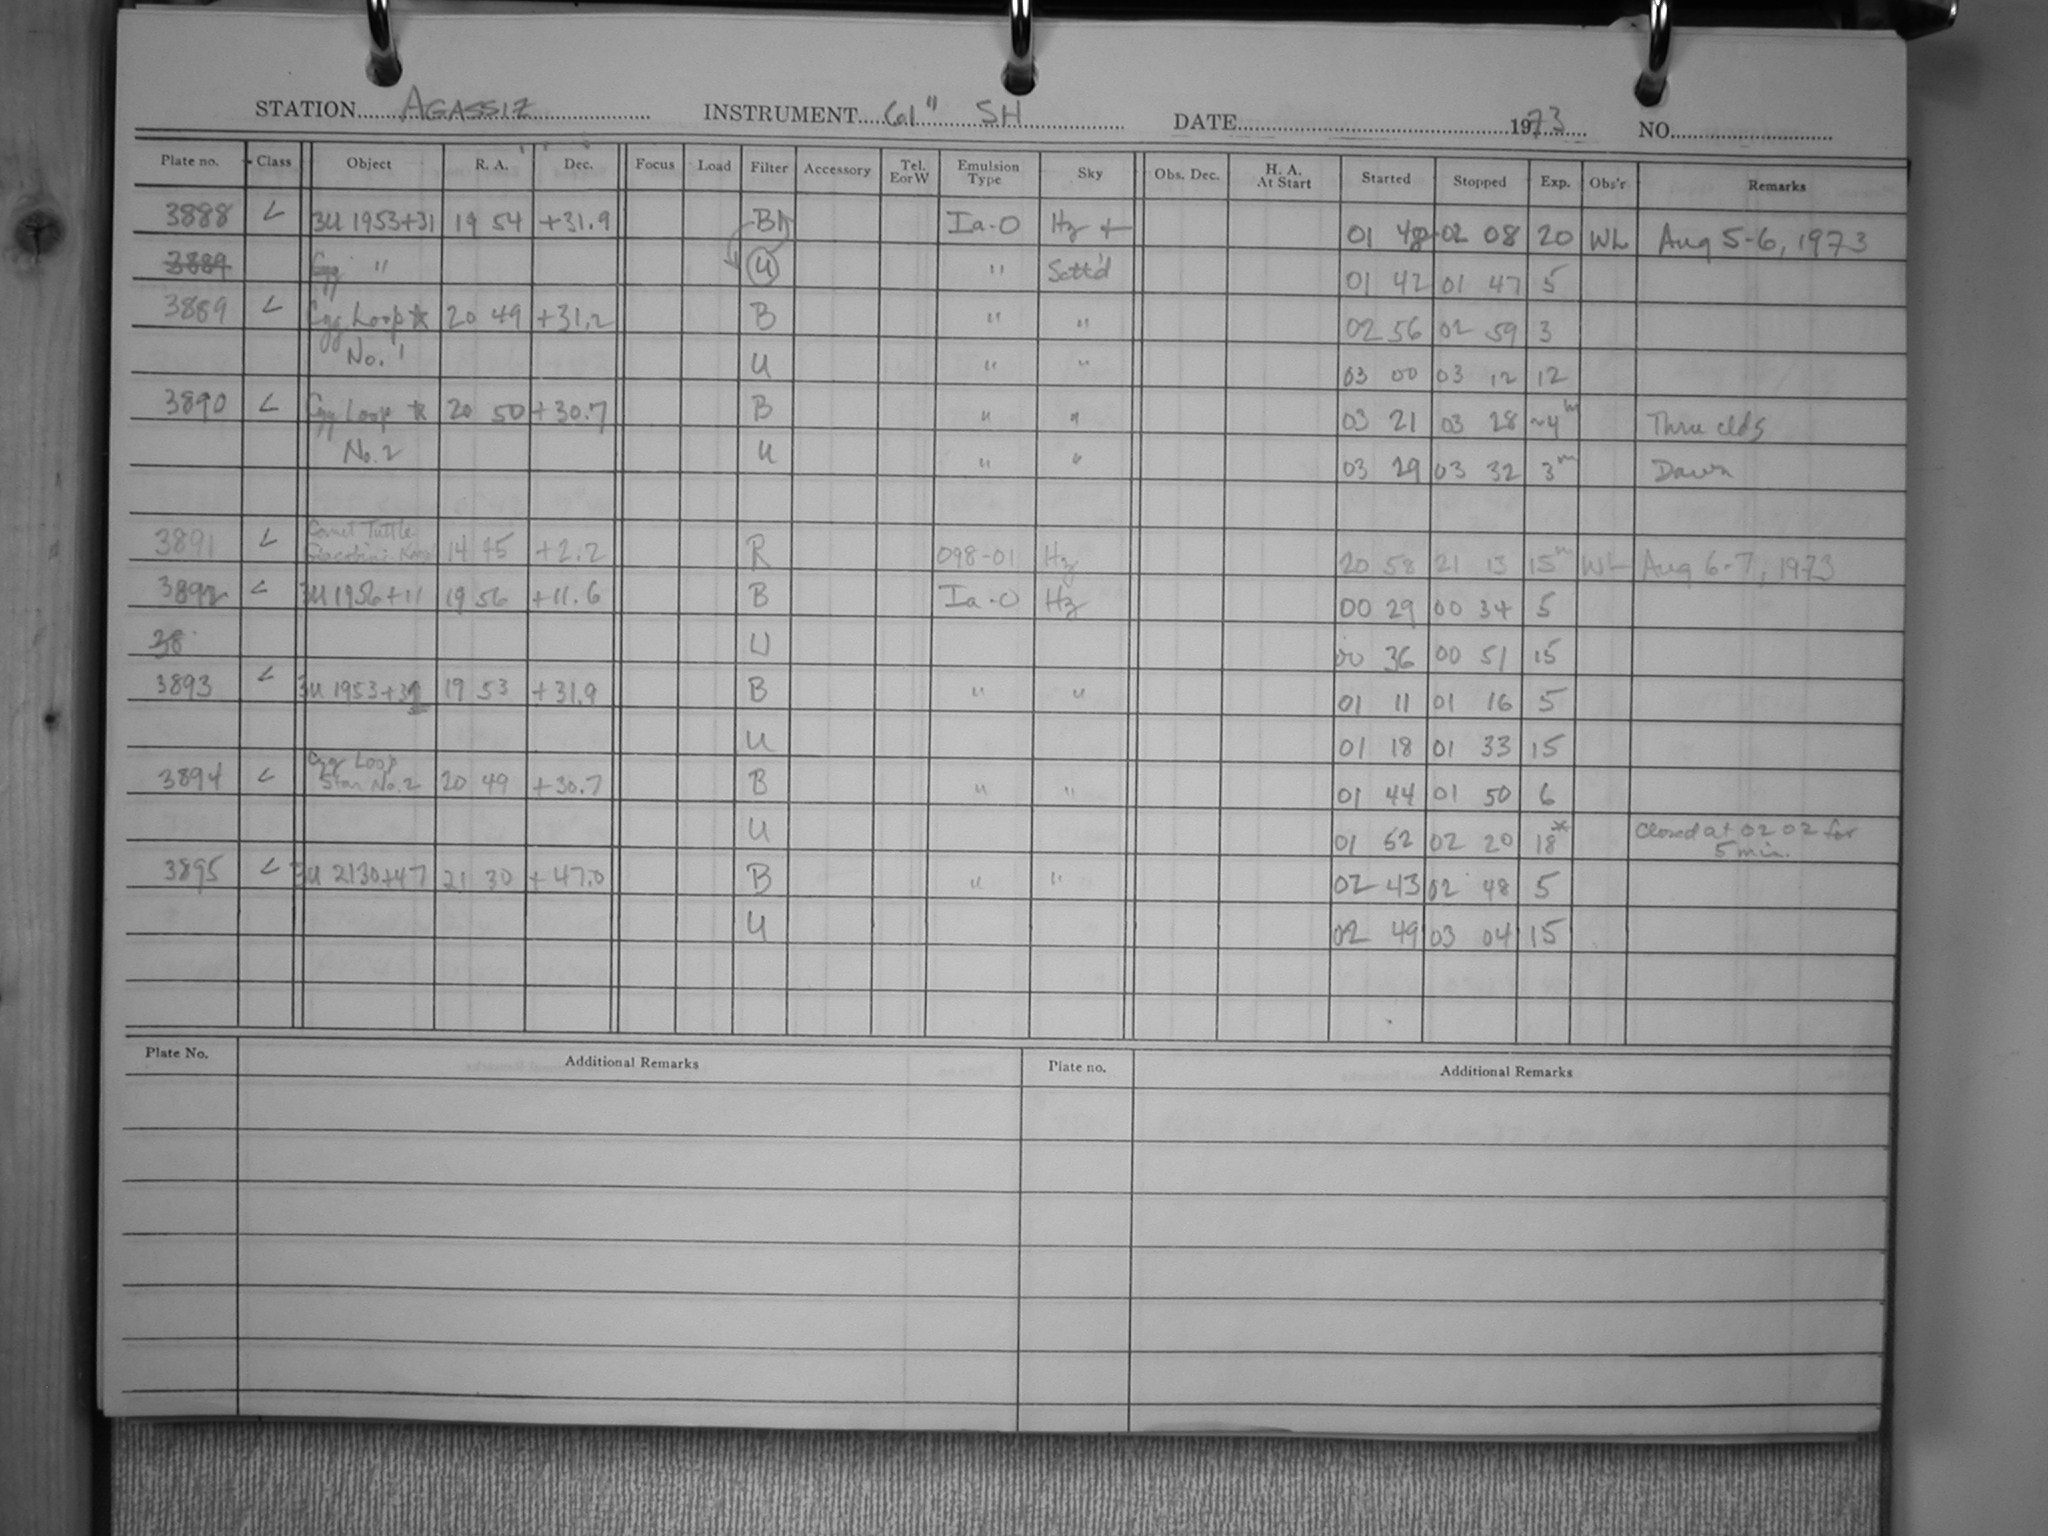 STATION AGASSIZ INSTRUMENT 61" SH DATE 1973 NO.
Plate no. Class Object R. A. Dec. Focus Load Filter Accessory Tel. E or W Emulsion Type Sky Obs. Dec. H. A. At Start Started Stopped Exp. Obs'r Remarks
3888 L 3U 1953+31 19 54 +31.9 B Ia-O Hz + 01 48 02 08 20 WL Aug 5-6, 1973
3889 Cyg " U " Scatt'd 01 42 01 47 5
3889 L Cyg Loop ★ 20 49 +31.2 B " " 02 56 02 59 3
No. 1 U " " 03 00 03 12 12
3890 L Cyg Loop ★ 20 50 +30.7 B " " 03 21 03 28 ~4m Thru clds
No. 2 U " " 03 29 03 32 3m Dawn
3891 L Comet Tuttle
Giacobini- 14 45 +2.2 R 098-01 Hz 20 58 21 13 15m WL Aug 6-7, 1973
3892 L 3U 1956+11 19 56 +11.6 B Ia-O Hz 00 29 00 34 5
38 U 00 36 00 51 15
3893 L 3U 1953+31 19 53 +31.9 B " " 01 11 01 16 5
U 01 18 01 33 15
3894 L Cyg Loop
Star No. 2 20 49 +30.7 B " " 01 44 01 50 6
U 01 52 02 20 18* Closed at 02 02 for
5 min.
3895 L 3U 2130+47 21 30 +47.0 B " " 02 43 02 48 5
U 02 49 03 04 15
Plate No. Additional Remarks Plate no. Additional Remarks